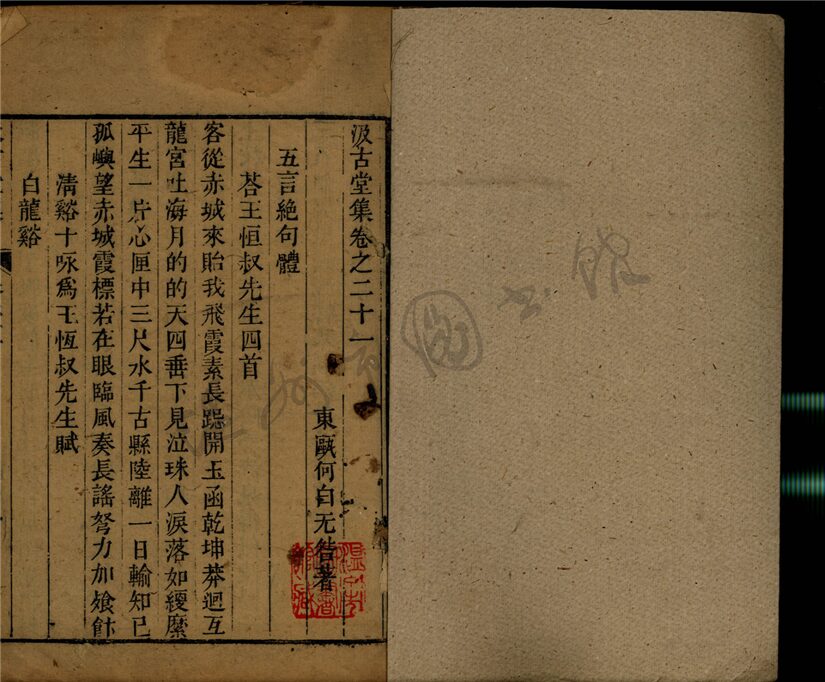 汲古堂集卷之二十一
東甌何白无咎著
五言絶句體
荅王恒叔先生四首
客從赤城來貽我飛霞素長跽開玉函乾坤莽迴互
龍宮吐海月的的天四垂下見泣珠人淚落如綆縻
平生一片心匣中三尺水千古縣陸離一日輸知已
孤嶼望赤城霞標若在眼臨風奏長謠努力加飧飰
清谿十咏爲王恆叔先生賦
白龍谿
圖書館